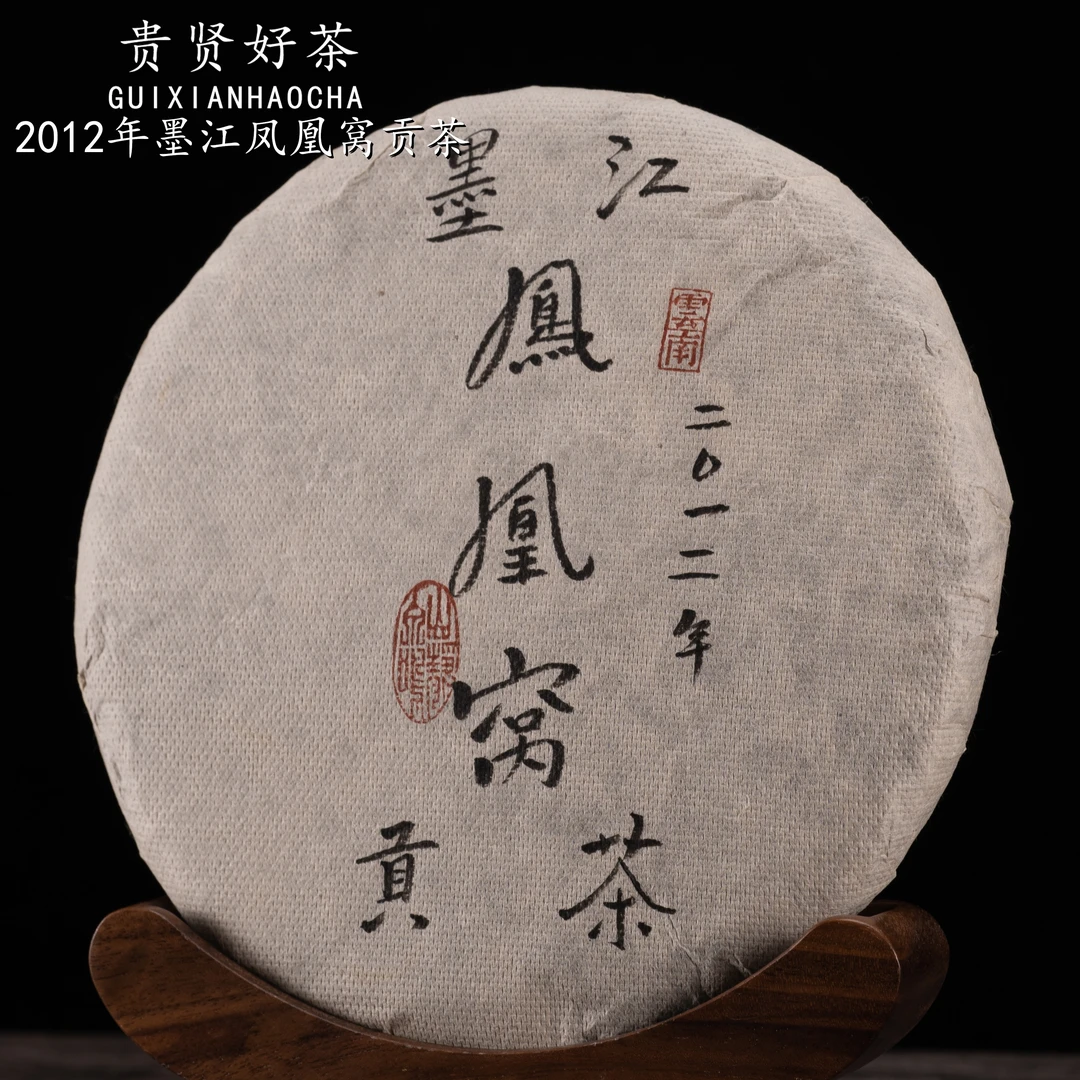 贵贤好茶
GUIXIANHAOCHA
2012年墨江凤凰窝贡茶
墨江
鳳凰窝
貢茶
雲南
二〇一二年